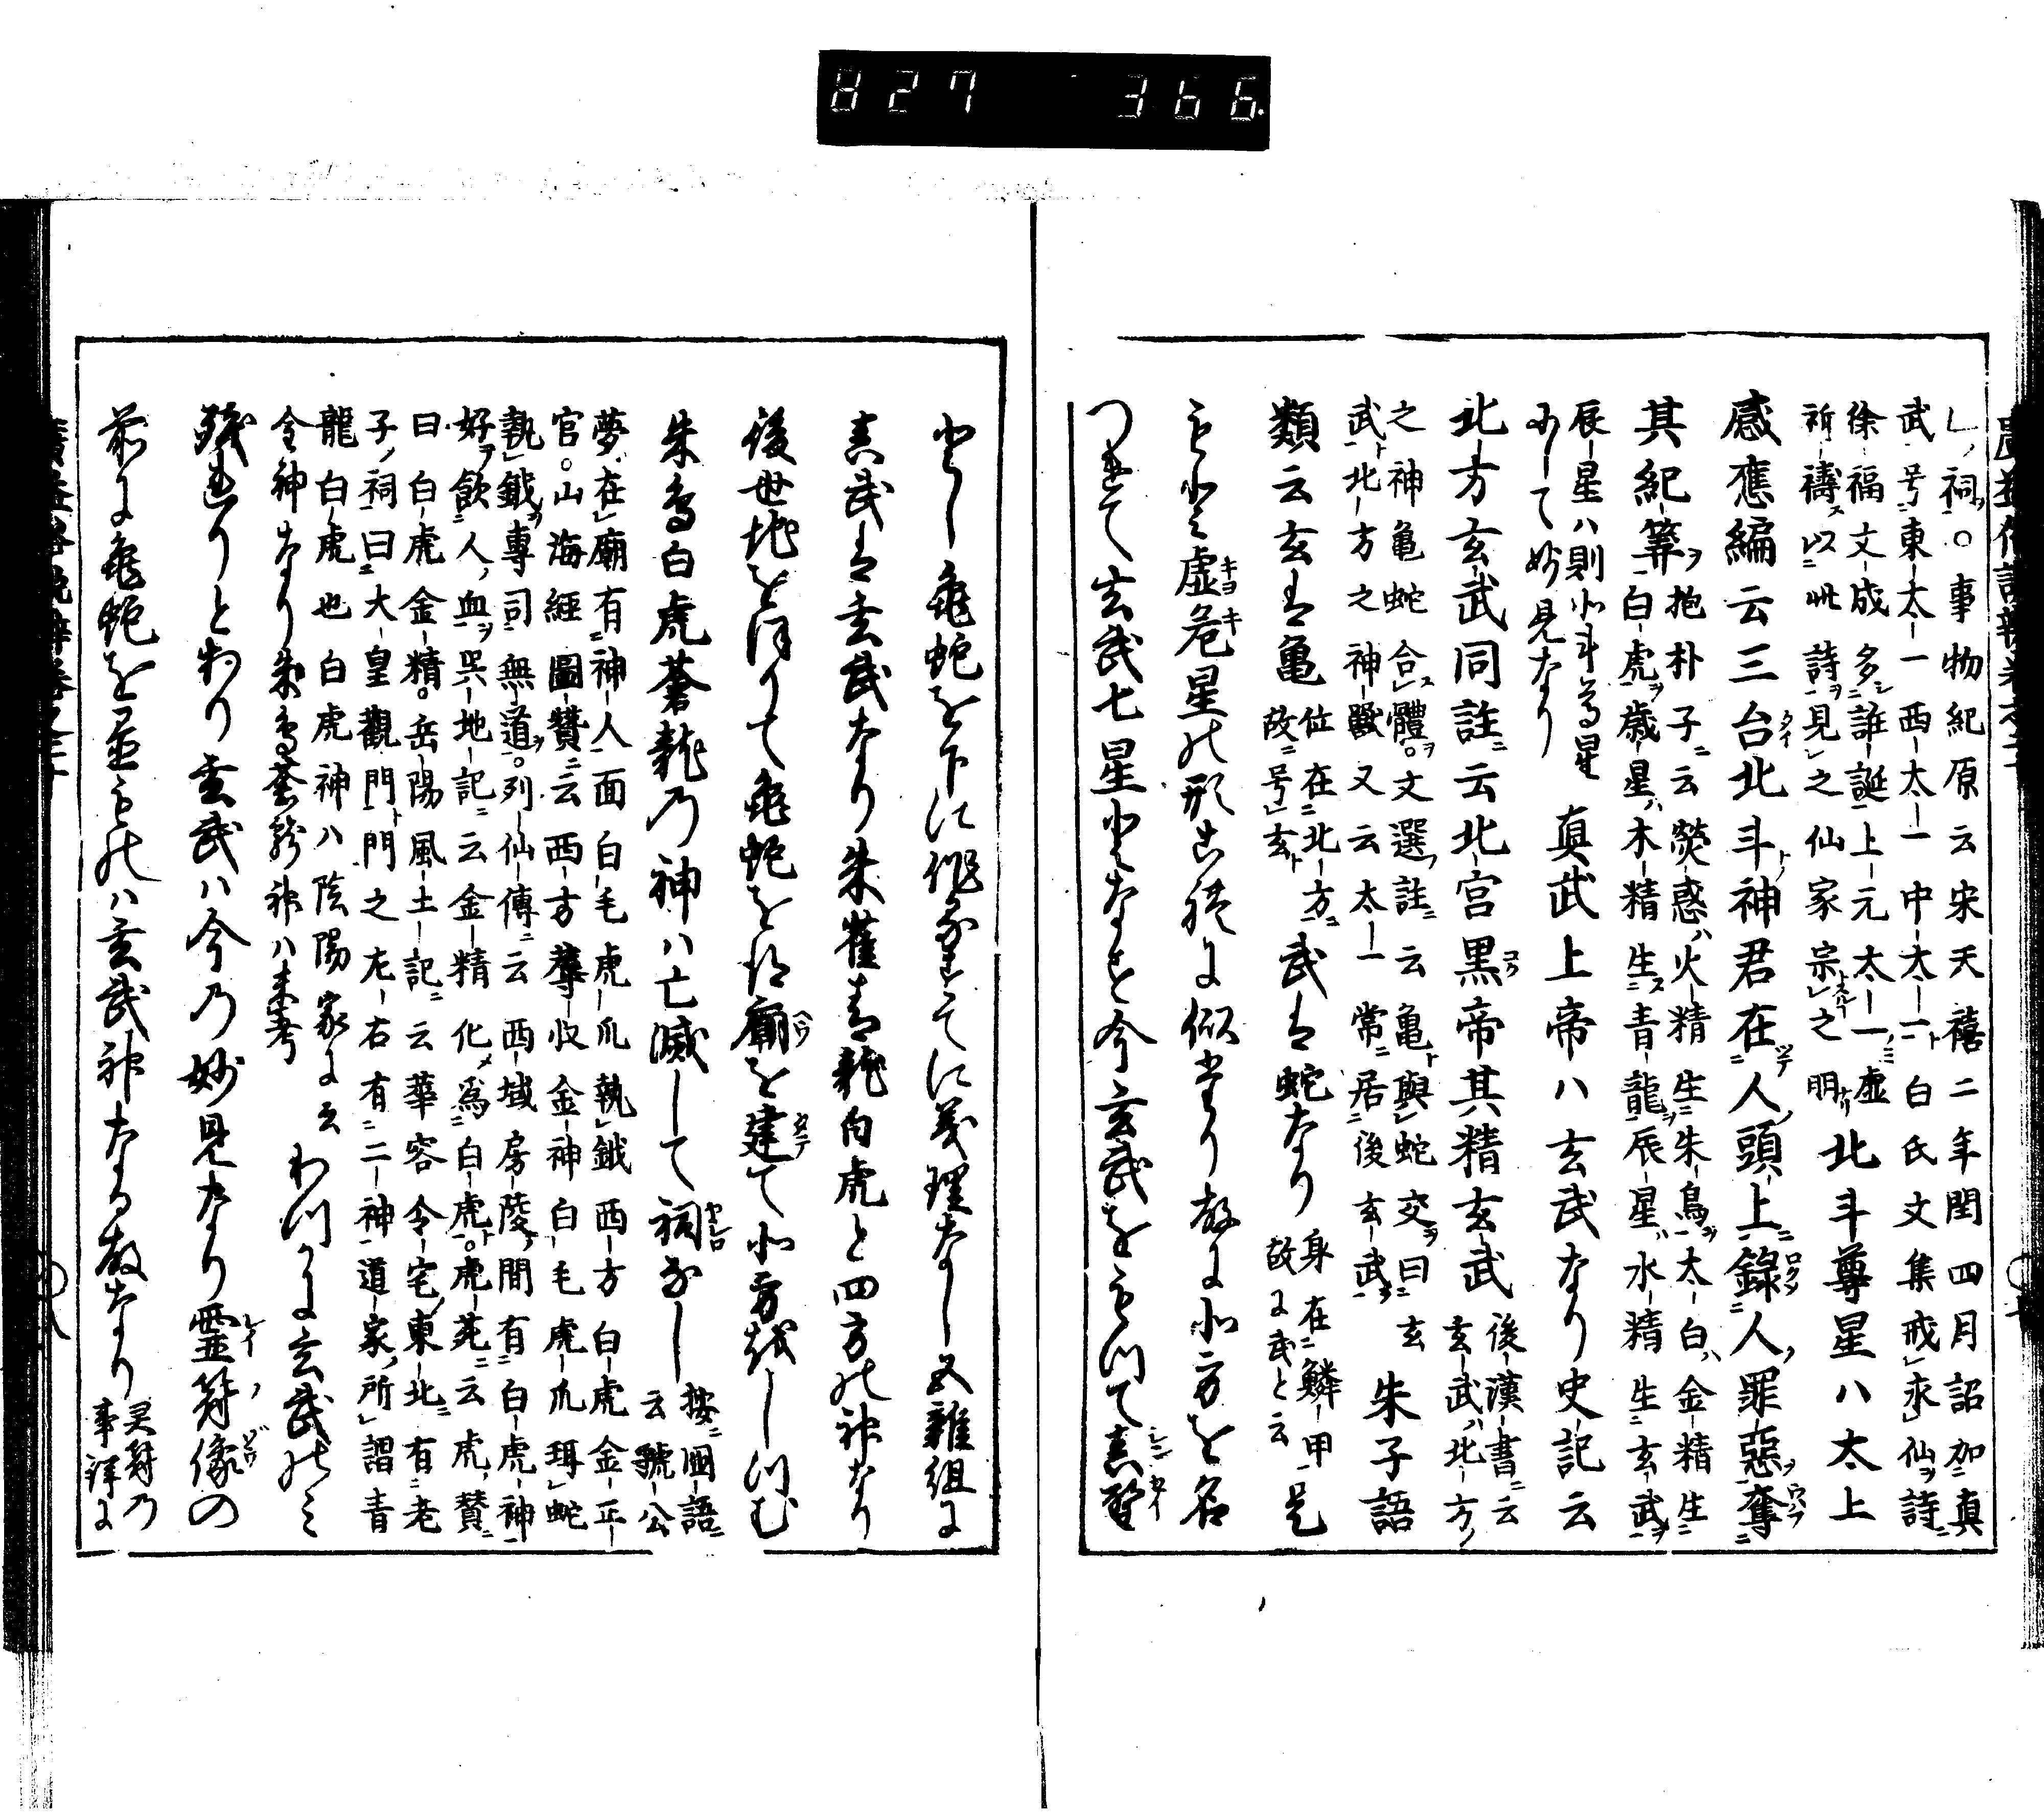 827 366
祠。事物紀原云宋天禧二年閏四月詔加真
武号東太一西太一中太一白氏文集戒求仙詩
徐福文成多誑誕上元太一虚
祈禱以此詩見之仙家宗之明
北斗尊星ハ太上
感應編云三台北斗神君在人頭上錄人罪惡奪
其紀筭
抱朴子云熒惑ハ火精生朱鳥太白ハ金精生
白虎歳星ハ木精生青龍辰星ハ水精生玄武
辰星ハ則北斗尊星
にして妙見なり
真武上帝ハ玄武なり史記云
北方玄武同註云北宮黒帝其精玄武
後漢書云
玄武ハ北方ノ
之神亀蛇合體。文選註云亀與蛇交曰玄
武北方之神獸又云太一常居後玄武
朱子語
類云玄は亀
位在北方
故号玄
武は蛇なり
身在鱗甲
故に武と云
是
も北に虚危星の形に似たり故に北方を名
つけて玄武七星となす今玄武をもつて真聖
とし亀蛇を下に作るすてに義理なし五雜組に
真武は玄武なり朱雀青龍白虎と四方の神なり
後世地をほりて亀蛇を得廟を建て北方をしつむ
朱鳥白虎蒼龍乃神ハ亡滅して祠なし
按國語
云虢公
夢在廟有神人面白毛虎爪執鉞西方白虎金正
官。山海經圖賛云西方蓐收金神白毛虎爪珥蛇
執鉞專司無道。列仙傳云西域房陵間有白虎神
好飲人血呉地記云金精化為白虎。虎苑云虎賛
曰白虎金精。岳陽風土記云華容令宅東北有老
子祠曰大皇觀門門之左右有二神道家所謂青
龍白虎也白虎神ハ陰陽家に云
令神なり朱鳥蒼龍神ハ未考
わつかに玄武のミ
殘れりとあり玄武ハ今乃妙見なり霊符像の
前に亀蛇を画ものハ玄武神なる故なり
灵符乃
事詳に